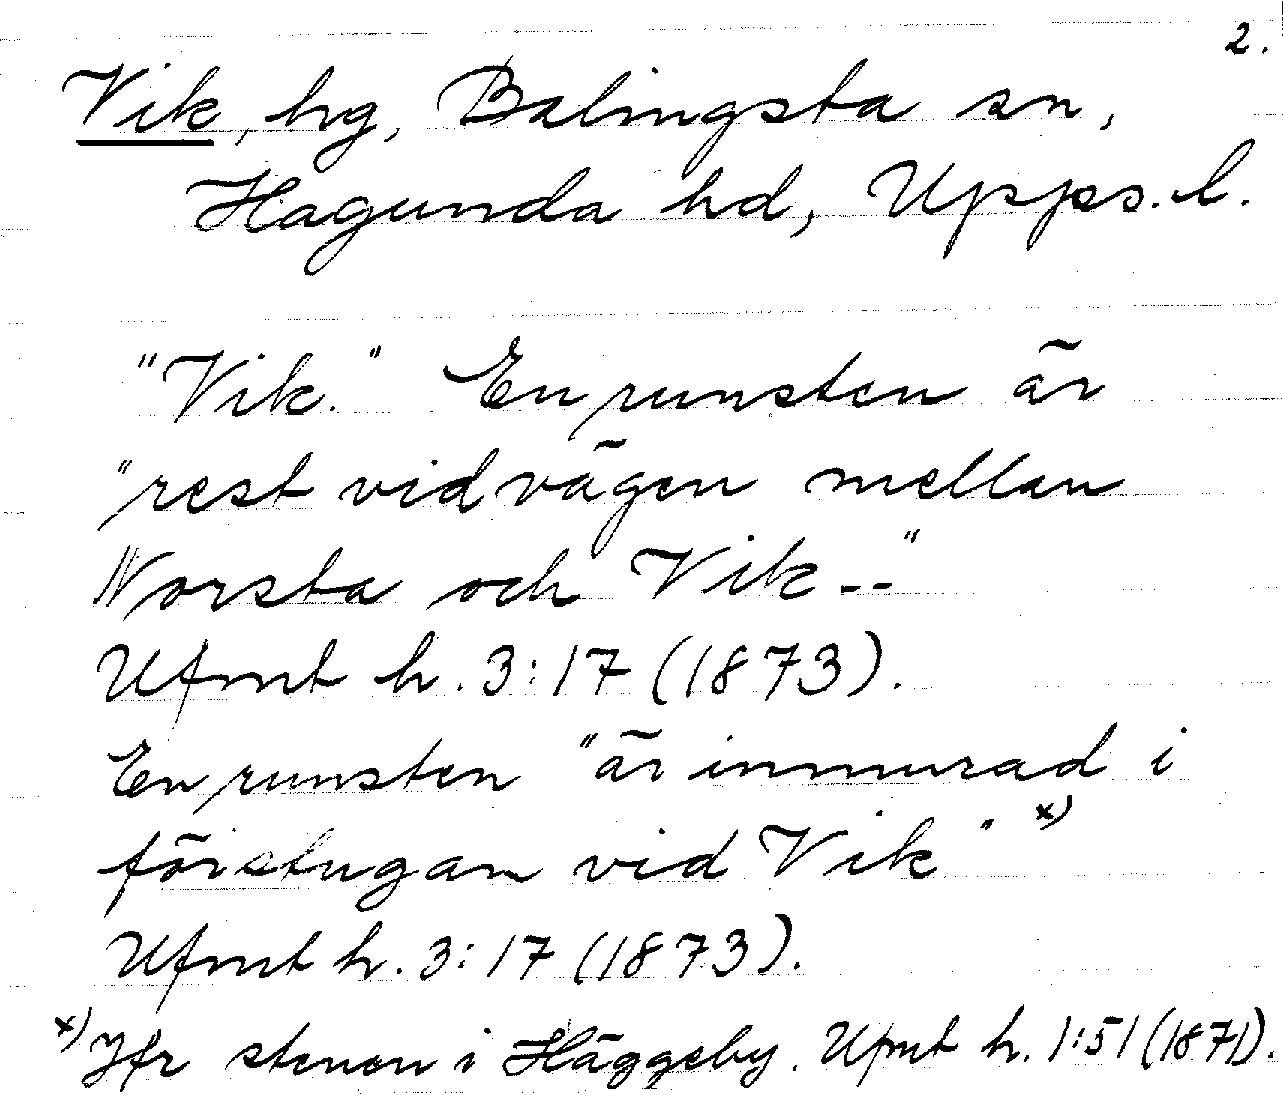 2.
Vik, hg, Balingsta sn,
Hagunda hd, Upps. l.
"Vik." En runsten är
"rest vid vägen mellan
Norsta och Vik--"
Ufmt h. 3:17 (1873).
En runsten "är inmurad i
förstugan vid Vik" x)
Ufmt h. 3:17 (1873).
x) Jfr stenen i Häggeby. Ufmt h. 1:51 (1871).